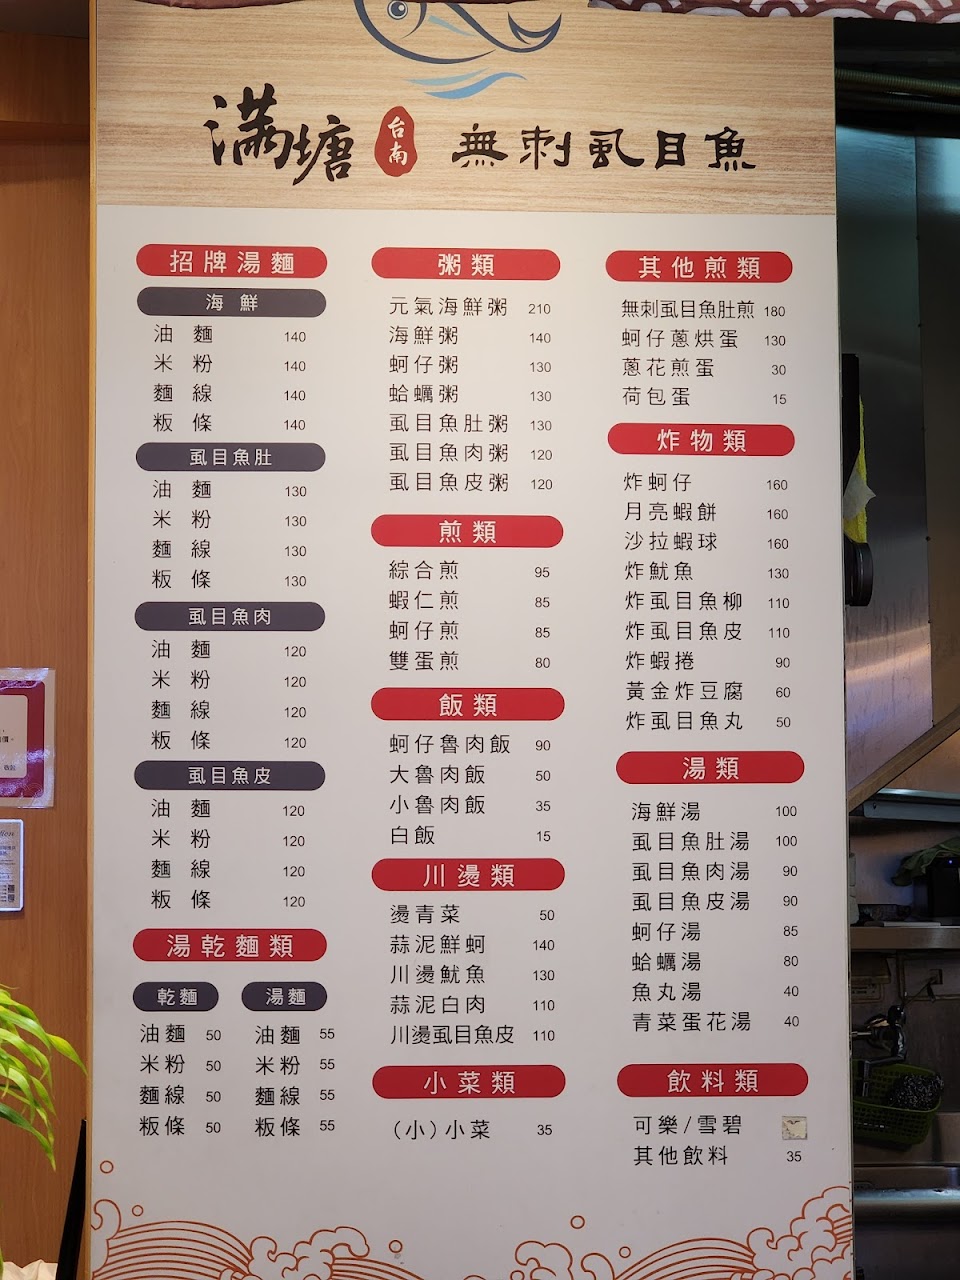 滿塘 台南 無刺虱目魚
招牌湯麵
海鮮
油麵 140
米粉 140
麵線 140
粄條 140
虱目魚肚
油麵 130
米粉 130
麵線 130
粄條 130
虱目魚肉
油麵 120
米粉 120
麵線 120
粄條 120
虱目魚皮
油麵 120
米粉 120
麵線 120
粄條 120
湯乾麵類
乾麵
油麵 50
米粉 50
麵線 50
粄條 50
湯麵
油麵 55
米粉 55
麵線 55
粄條 55
粥類
元氣海鮮粥 210
海鮮粥 140
蚵仔粥 130
蛤蠣粥 130
虱目魚肚粥 130
虱目魚肉粥 120
虱目魚皮粥 120
煎類
綜合煎 95
蝦仁煎 85
蚵仔煎 85
雙蛋煎 80
飯類
蚵仔魯肉飯 90
大魯肉飯 50
小魯肉飯 35
白飯 15
川燙類
燙青菜 50
蒜泥鮮蚵 140
川燙魷魚 130
蒜泥白肉 110
川燙虱目魚皮 110
小菜類
（小）小菜 35
其他煎類
無刺虱目魚肚煎 180
蚵仔蔥烘蛋 130
蔥花煎蛋 30
荷包蛋 15
炸物類
炸蚵仔 160
月亮蝦餅 160
沙拉蝦球 160
炸魷魚 130
炸虱目魚柳 110
炸虱目魚皮 110
炸蝦捲 90
黃金炸豆腐 60
炸虱目魚丸 50
湯類
海鮮湯 100
虱目魚肚湯 100
虱目魚肉湯 90
虱目魚皮湯 90
蚵仔湯 85
蛤蠣湯 80
魚丸湯 40
青菜蛋花湯 40
飲料類
可樂/雪碧
其他飲料 35